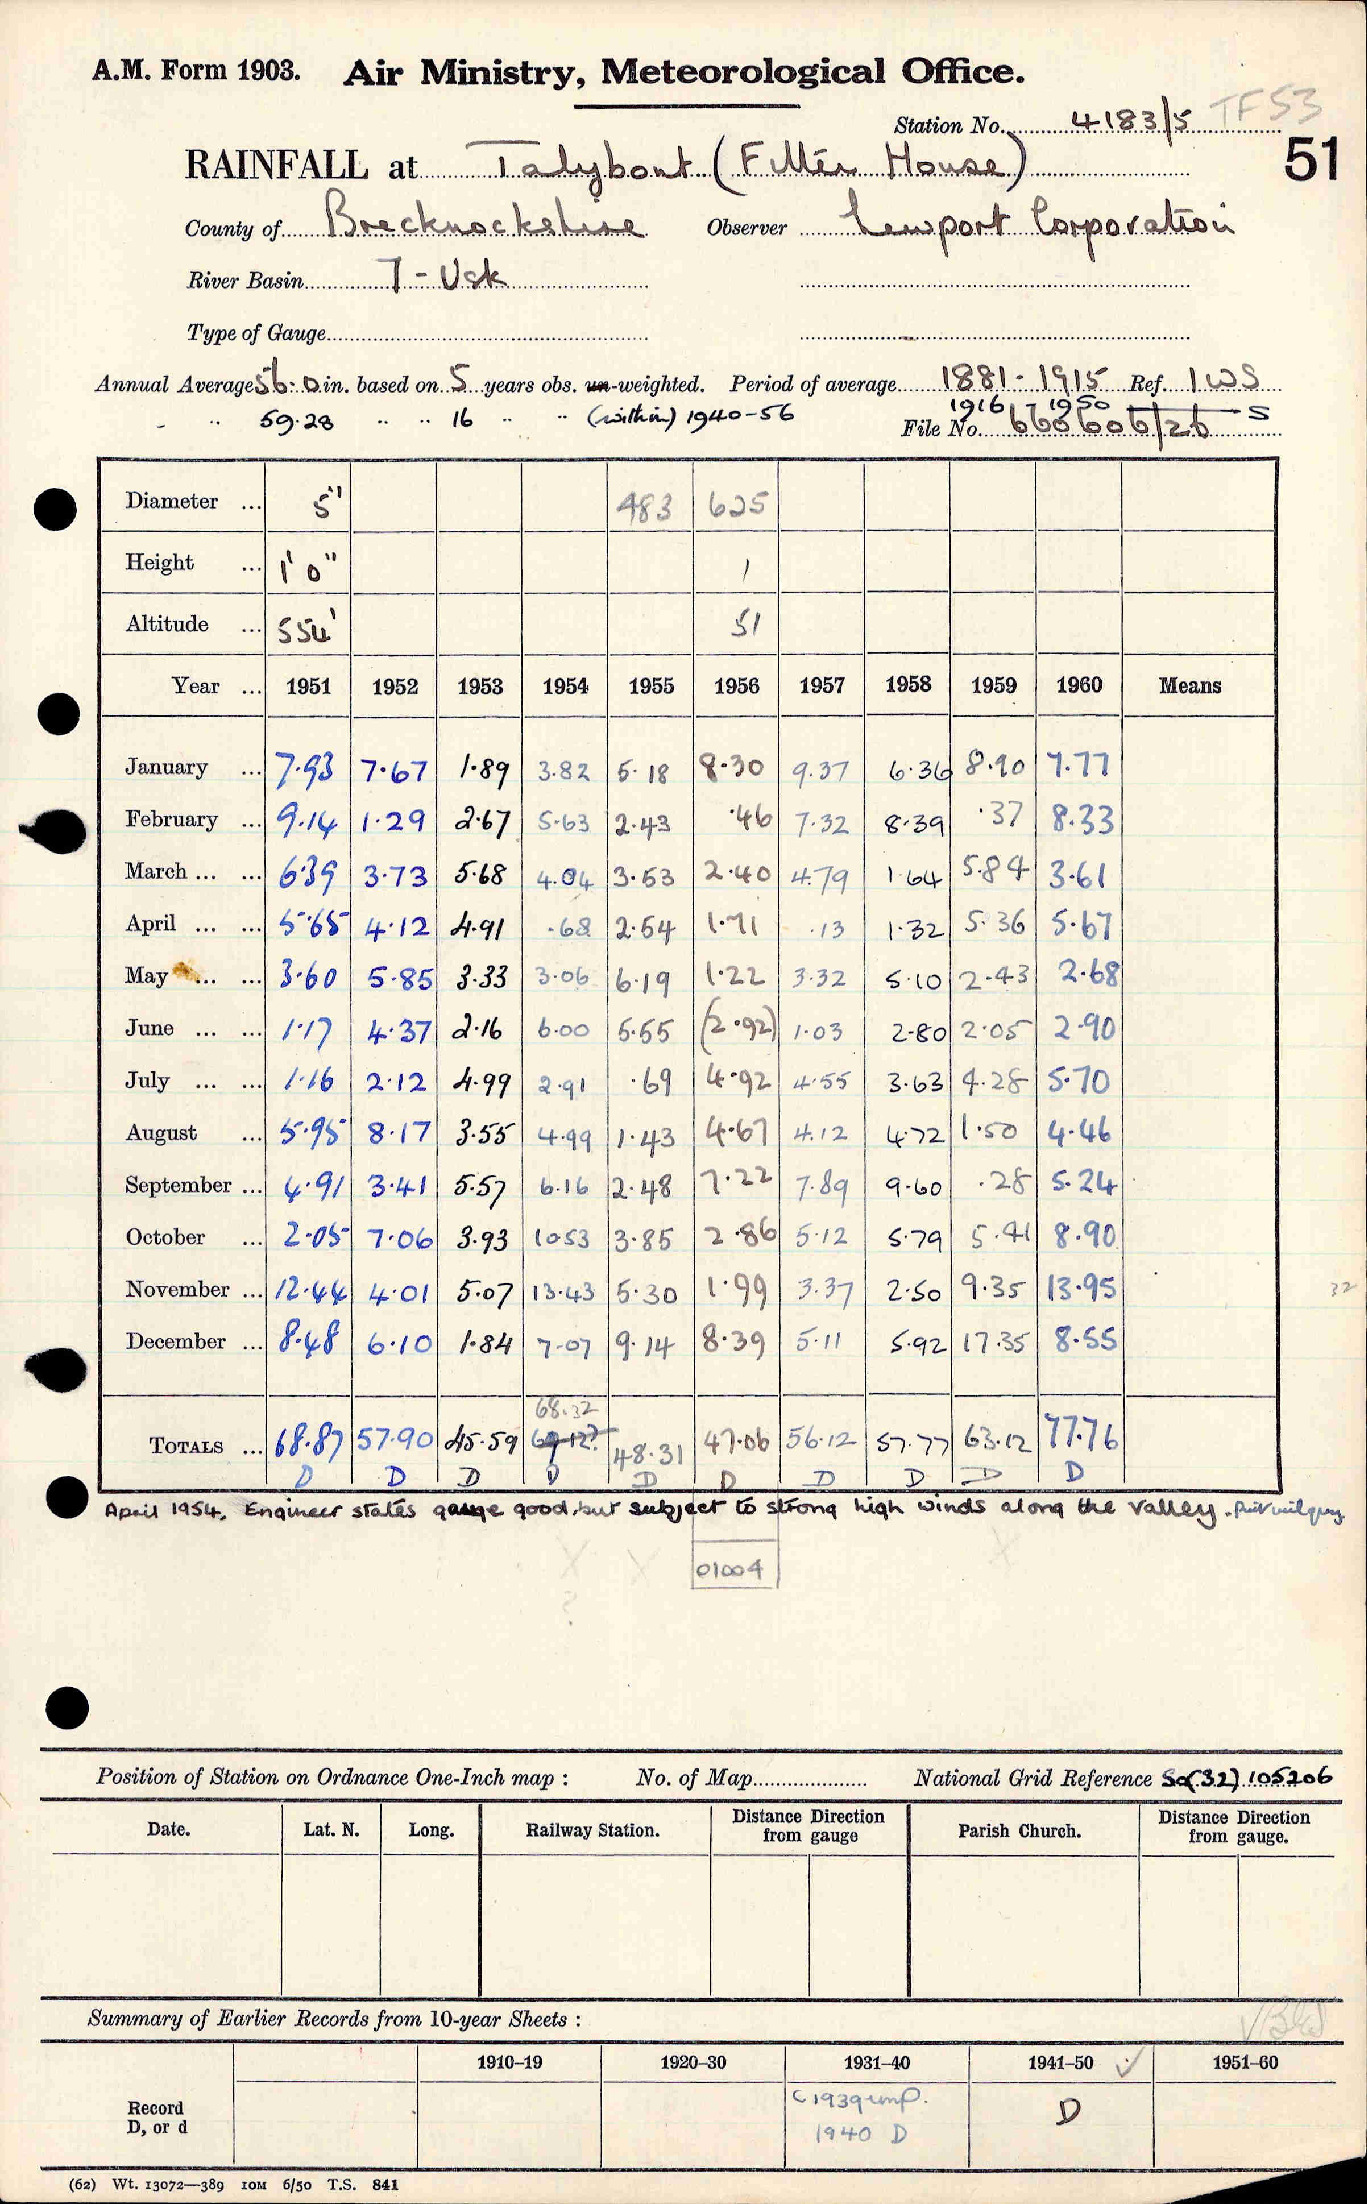 A.M. Form 1903. Air Ministry, Meteorological Office.
Station No. 4183/5 TF53
51
RAINFALL at Talybont (Filter House)
County of Brecknockshire Observer Newport Corporation
River Basin 7 - Usk
Type of Gauge
Annual Average 56.0 in. based on 5 years obs. un-weighted. Period of average 1881-1915 Ref. IWS
" 59.28 " " 16 " " (within) 1940-56 1916 - 1950 S
File No. 660606/26
Diameter ... 5" 483 625
Height ... 1' 0" 1
Altitude ... 554' 51
Year ... 1951 1952 1953 1954 1955 1956 1957 1958 1959 1960 Means
January ... 7.93 7.67 1.89 3.82 5.18 8.30 9.37 6.36 8.90 7.77
February ... 9.14 1.29 2.67 5.63 2.43 .46 7.32 8.39 .37 8.33
March ... ... 6.39 3.73 5.68 4.04 3.53 2.40 4.79 1.64 5.84 3.61
April ... ... 5.65 4.12 4.91 .68 2.54 1.71 .13 1.32 5.36 5.67
May ... ... 3.60 5.85 3.33 3.06 6.19 1.22 3.32 5.10 2.43 2.68
June ... ... 1.17 4.37 2.16 6.00 5.55 (2.92) 1.03 2.80 2.05 2.90
July ... ... 1.16 2.12 4.99 2.91 .69 4.92 4.55 3.63 4.28 5.70
August ... 5.95 8.17 3.55 4.99 1.43 4.67 4.12 4.72 1.50 4.46
September ... 4.91 3.41 5.57 6.16 2.48 7.22 7.89 9.60 .28 5.24
October ... 2.05 7.06 3.93 10.53 3.85 2.86 5.12 5.79 5.41 8.90
November ... 12.44 4.01 5.07 13.43 5.30 1.99 3.37 2.50 9.35 13.95 32
December ... 8.48 6.10 1.84 7.07 9.14 8.39 5.11 5.92 17.35 8.55
68.32
TOTALS ... 68.87 57.90 45.59 69.12? 48.31 47.06 56.12 57.77 63.12 77.76
D D D D D D D D D D
April 1954. Engineer states gauge good, but subject to strong high winds along the valley.
01004
?
Position of Station on Ordnance One-Inch map : No. of Map National Grid Reference So(32) 105206
Date. Lat. N. Long. Railway Station. Distance Direction from gauge Parish Church. Distance Direction from gauge.
Summary of Earlier Records from 10-year Sheets :
1910-19 1920-30 1931-40 1941-50 1951-60
Record
D, or d
1940 D
D
(62) Wt. 13072—389 10M 6/50 T.S. 841